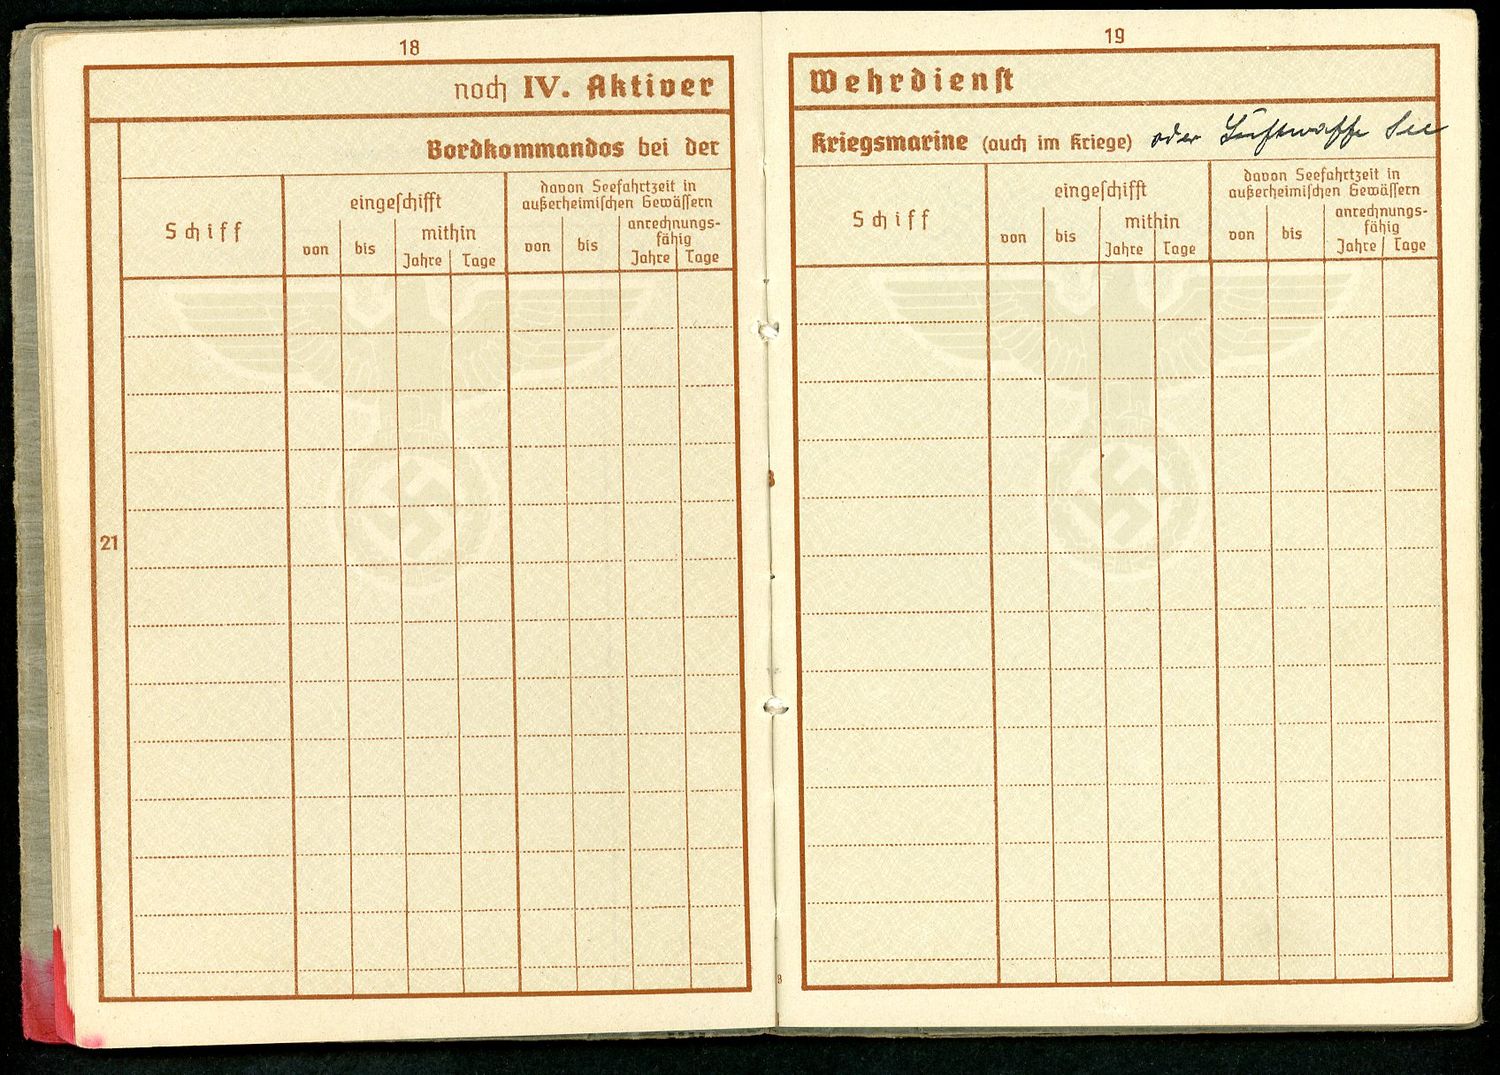 18
noch IV. Aktiver
Bordkommandos bei der
Schiff
eingeschifft
von
bis
mithin
Jahre
Tage
davon Seefahrtzeit in
außerheimischen Gewässern
von
bis
anrechnungs-
fähig
Jahre
Tage
21
19
Wehrdienst
Kriegsmarine (auch im Kriege) oder Luftwaffe See
Schiff
eingeschifft
von
bis
mithin
Jahre
Tage
davon Seefahrtzeit in
außerheimischen Gewässern
von
bis
anrechnungs-
fähig
Jahre
Tage